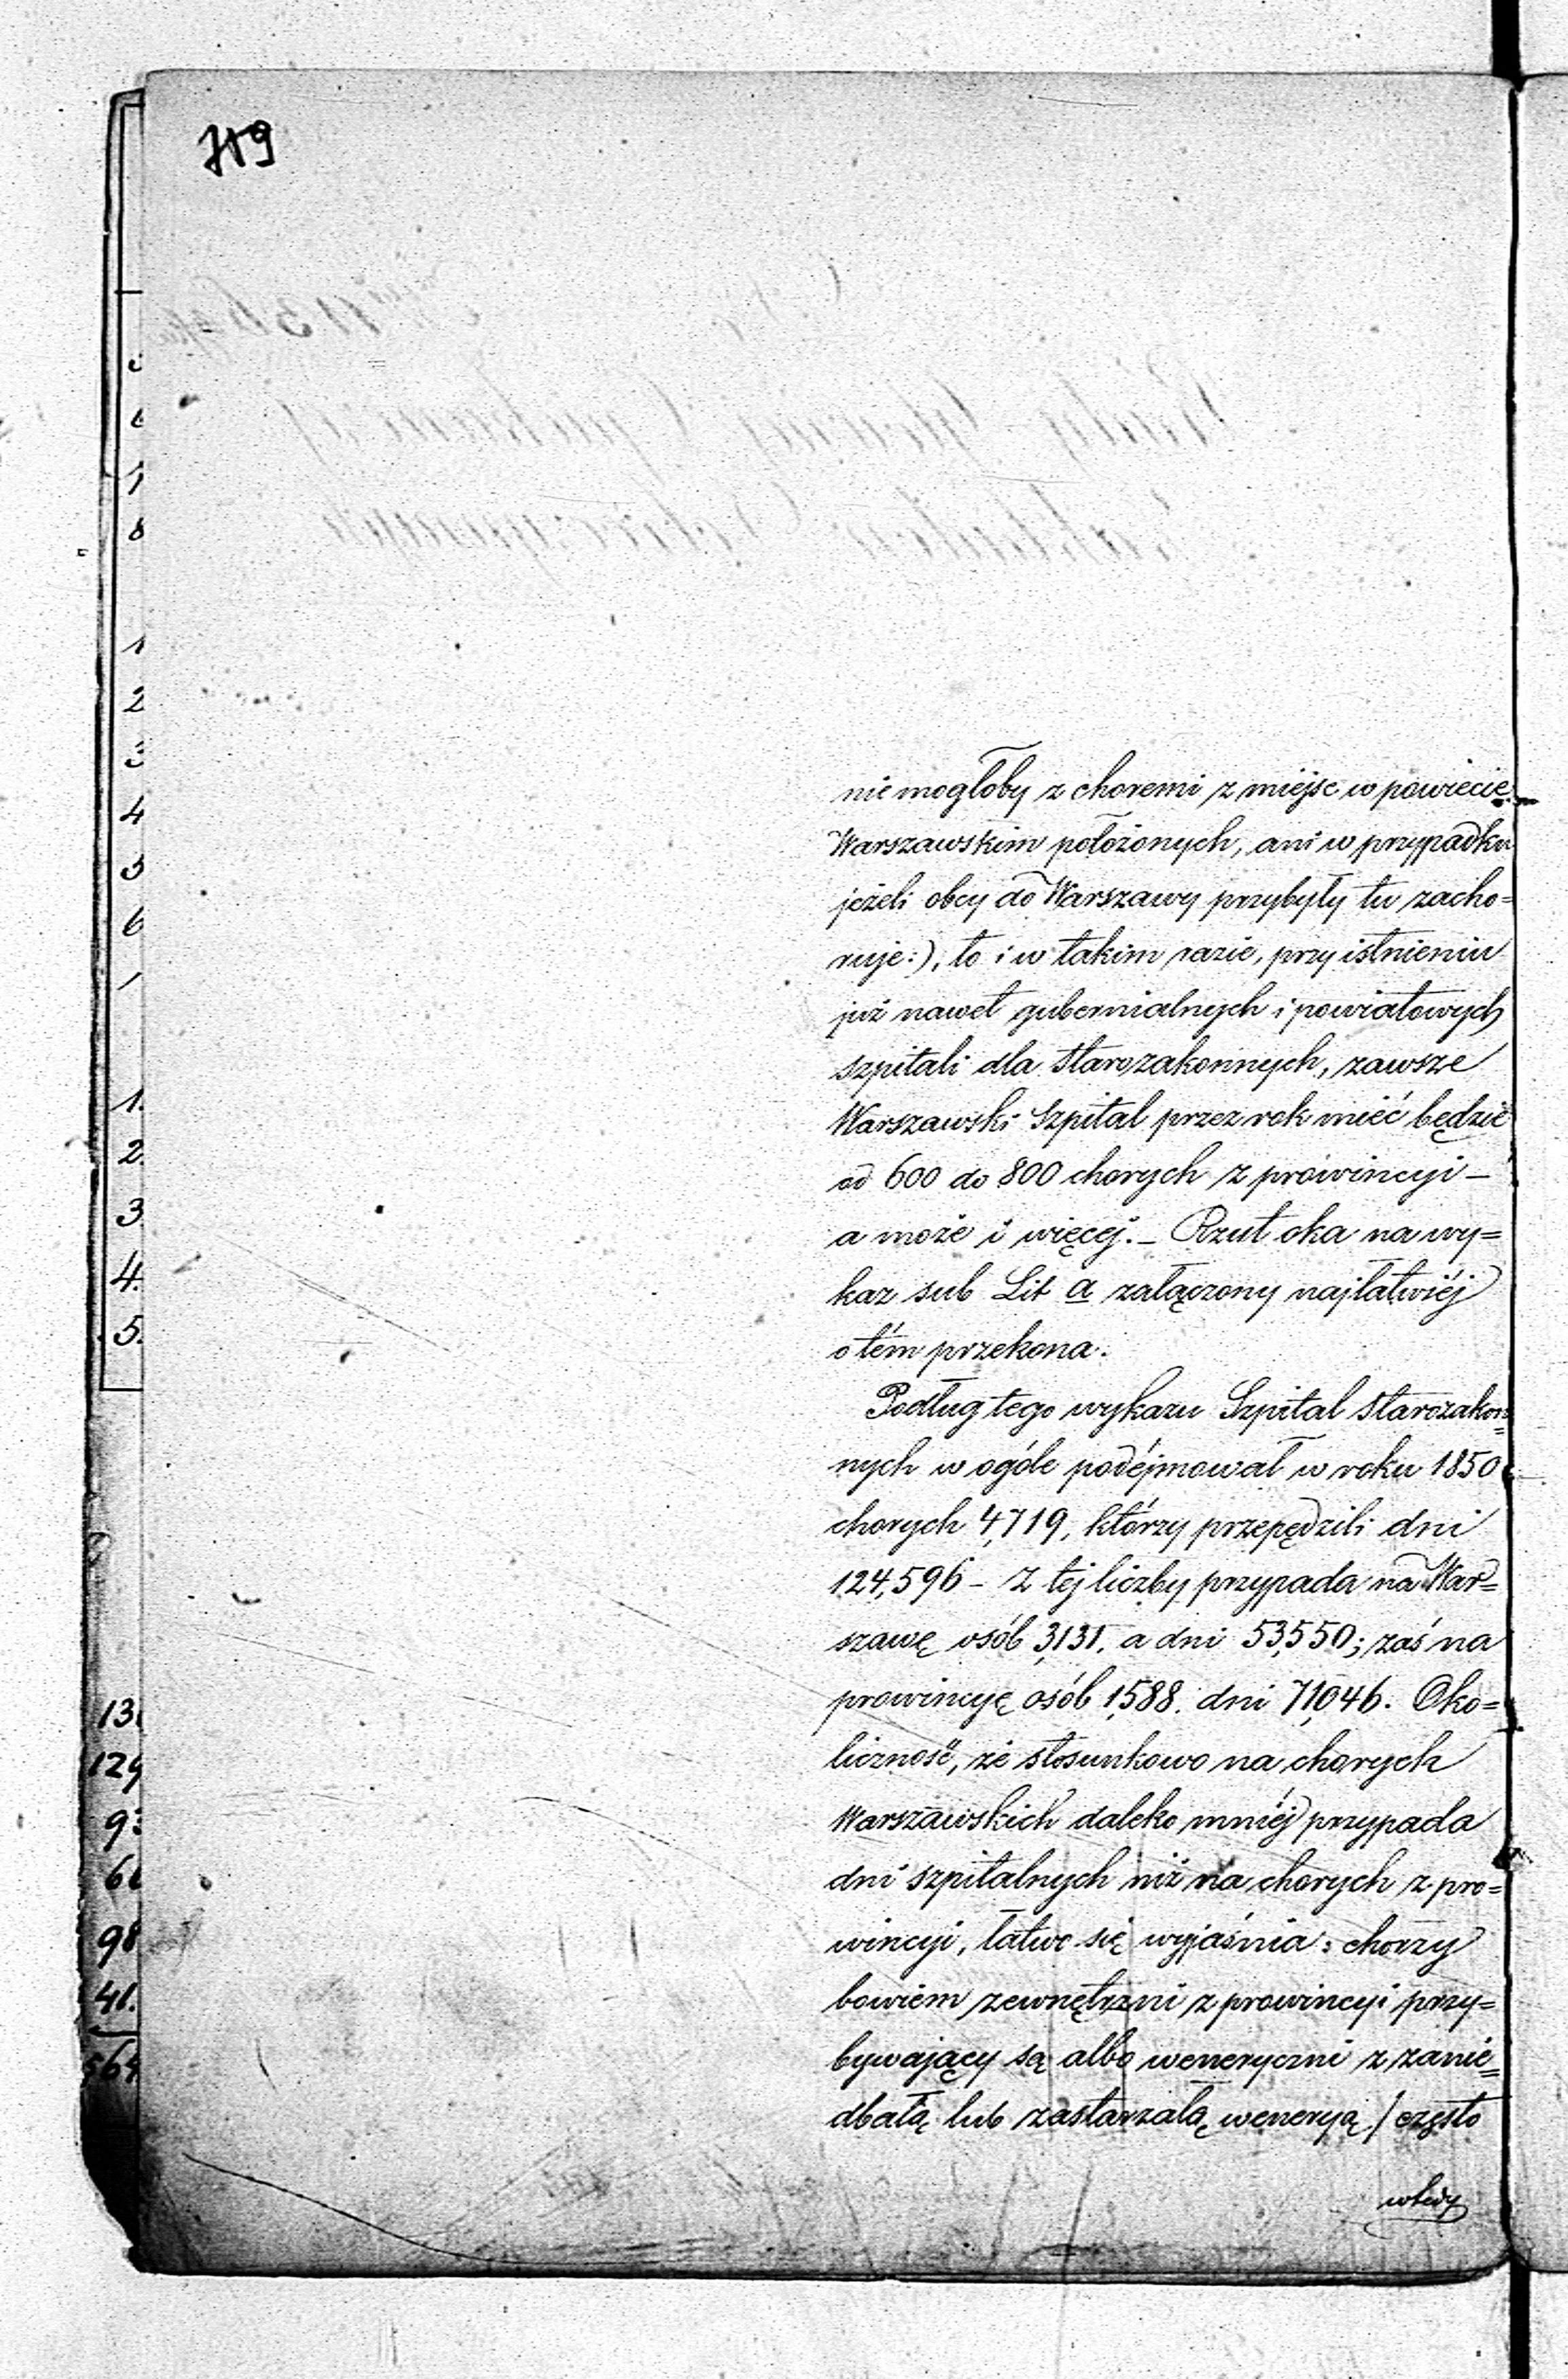 719
nie mogłoby z choremi z miejsc w powiecie
Warszawskim położonych, ani w przypadku
jeżeli obcy do Warszawy przybyły tu zacho=
ruje:), to i w takim razie, przy istnieniu
już nawet gubernialnych i powiatowych
szpitali dla starozakonnych, zawsze
Warszawski Szpital przez rok mieć będzie
od 600 do 800 chorych z prowincyi –
a może i więcej. – Rzut oka na wy=
kaz sub Lit a załączony najłatwiéj
o tém przekona.
Podług tego wykazu Szpital starozakon=
nych w ogóle podéjmował w roku 1850
chorych 4,719, którzy przepędzili dni
124,596 – Z téj liczby przypada na War=
szawę osób 3,131, a dni 53,550; zaś na
prowincyę osób 1,588. dni 71,046. Oko=
liczność, że stosunkowo na chorych
Warszawskich daleko mniéj przypada
dni szpitalnych niż na chorych z pro=
wincyi, łatwo się wyjaśnia: chorzy
bowiem zewnętrzni z prowincyi przy=
bywający są albo weneryczni z zanie=
dbałą lub zastarzałą weneryą / często
wtedy
2
3
4
5
6
1
1.
2.
3.
4.
5.
98
41.